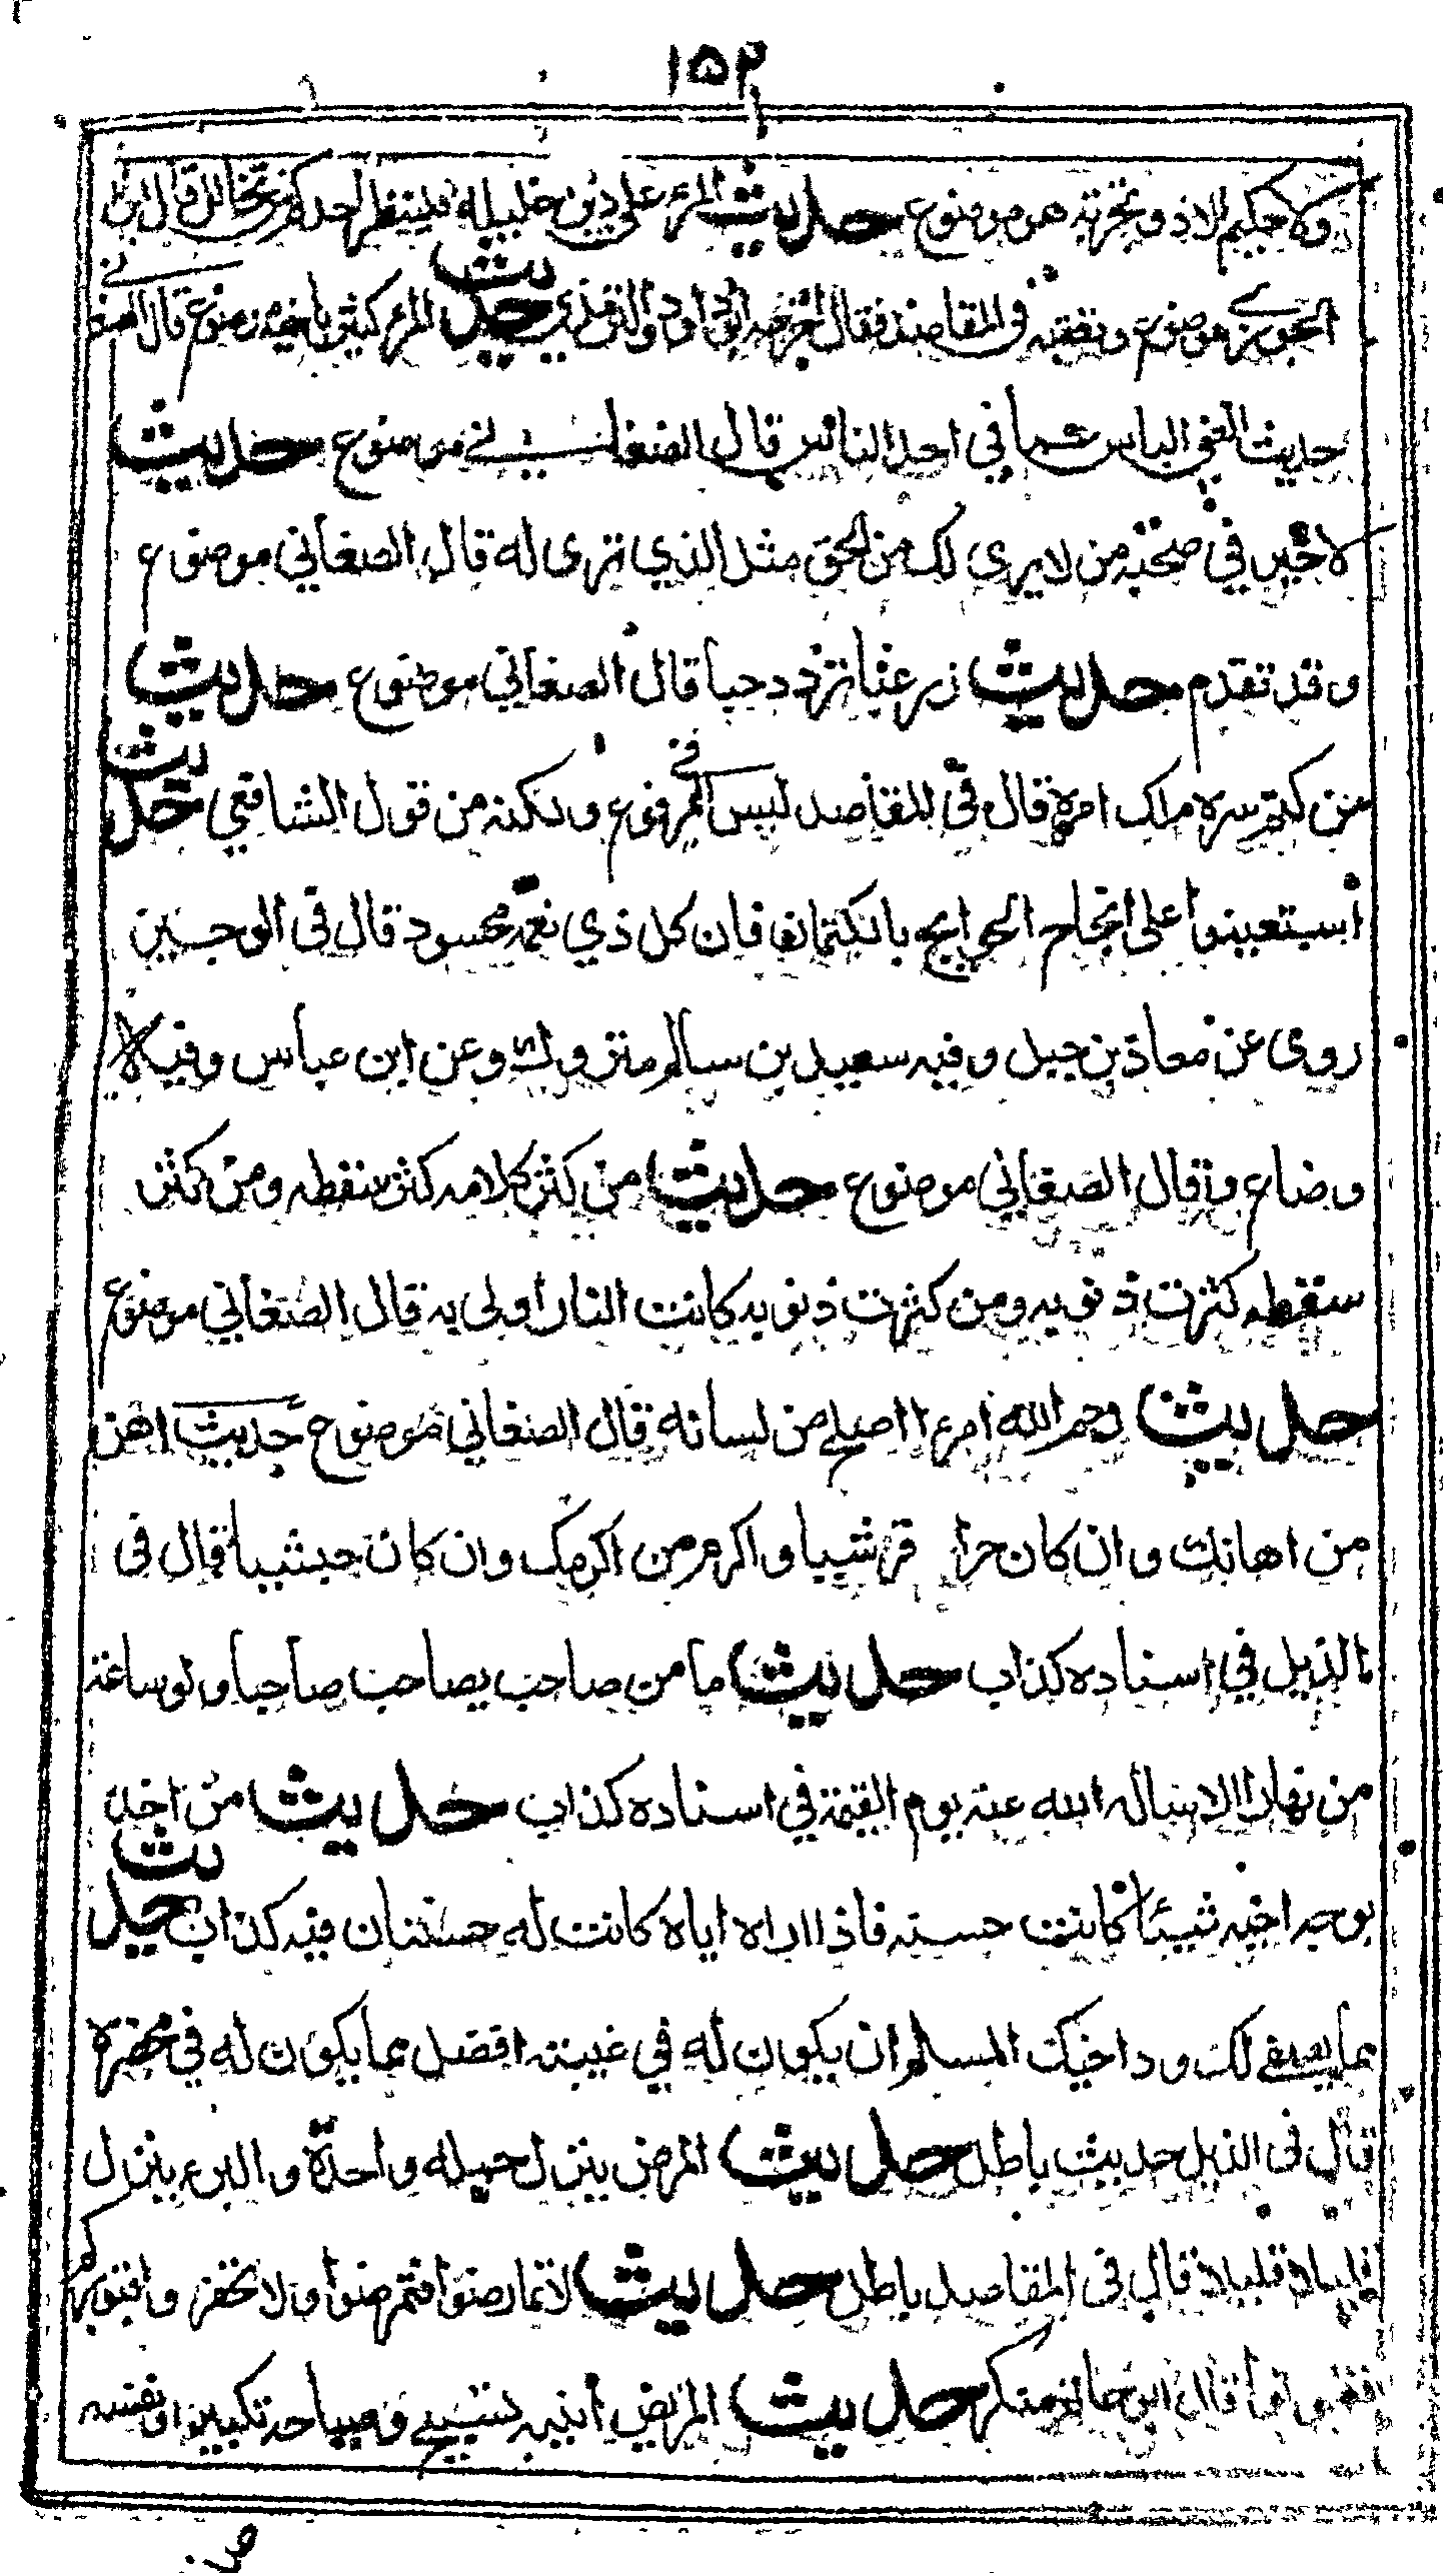 ١٥٢
ولا حكيم الا ذو تجربة هو موضوع حديث المرء على دين خليله فلينظر احدكم من يخالل قال ابن
الجوزي موضوع وتعقبه في المقاصد فقال اخرجه ابو داود والترمذي حديث المرء كثير باخيه موضوع قال الصغاني
حديث الغنى الياس مما في ايدي الناس قال الصغاني موضوع حديث
لا خير في صحبة من لا يرى لك من الحق مثل الذي ترى له قال الصغاني موضوع
وقد تقدم حديث زر غبا تزدد حبا قال الصغاني موضوع حديث
من كتم سره ملك امره قال في المقاصد ليس في المرفوع ولكنه من قول الشافعي حديث
أستعينوا على انجاح الحوايج بالكتمان فان كل ذي نعمة محسود قال في الوجيز
روى عن معاذ بن جبل وفيه سعيد بن سالم متروك وعن ابن عباس وفيه لا
وضاع وقال الصغاني موضوع حديث من كثر كلامه كثر سقطه ومن كثر
سقطه كثرت ذنوبه ومن كثرت ذنوبه كانت النار اولى به قال الصغاني موضوع
حديث رحم الله امرءا اصلح من لسانه قال الصغاني موضوع حديث اهن
من اهانك وان كان حرا قرشيا واكرم من اكرمك وان كان حبشيا قال في
الذيل في اسناده كذاب حديث ما من صاحب يصاحب صاحبا ولو ساعة
من نهار الا يساله الله عنه يوم القيمة في اسناده كذاب حديث من اخذ
بوجه اخيه شيئا كانت حسنة فاذا اراه اياه كانت له حسنتان فيه كذاب حديث
مما يصفي لك ود اخيك المسلم ان يكون له في غيبته افضل مما يكون له في محضره
قال في الذيل حديث باطل حديث المرض ينزل جملة واحدة والبرء ينزل
قليلا قليلا قال في المقاصد باطل حديث لا تمارضوا فتمرضوا ولا تحفروا قبوركم
فتموتوا قال ابن حاتم منكر حديث المريض أنينه تسبيح وصياحه تكبير ونفسه